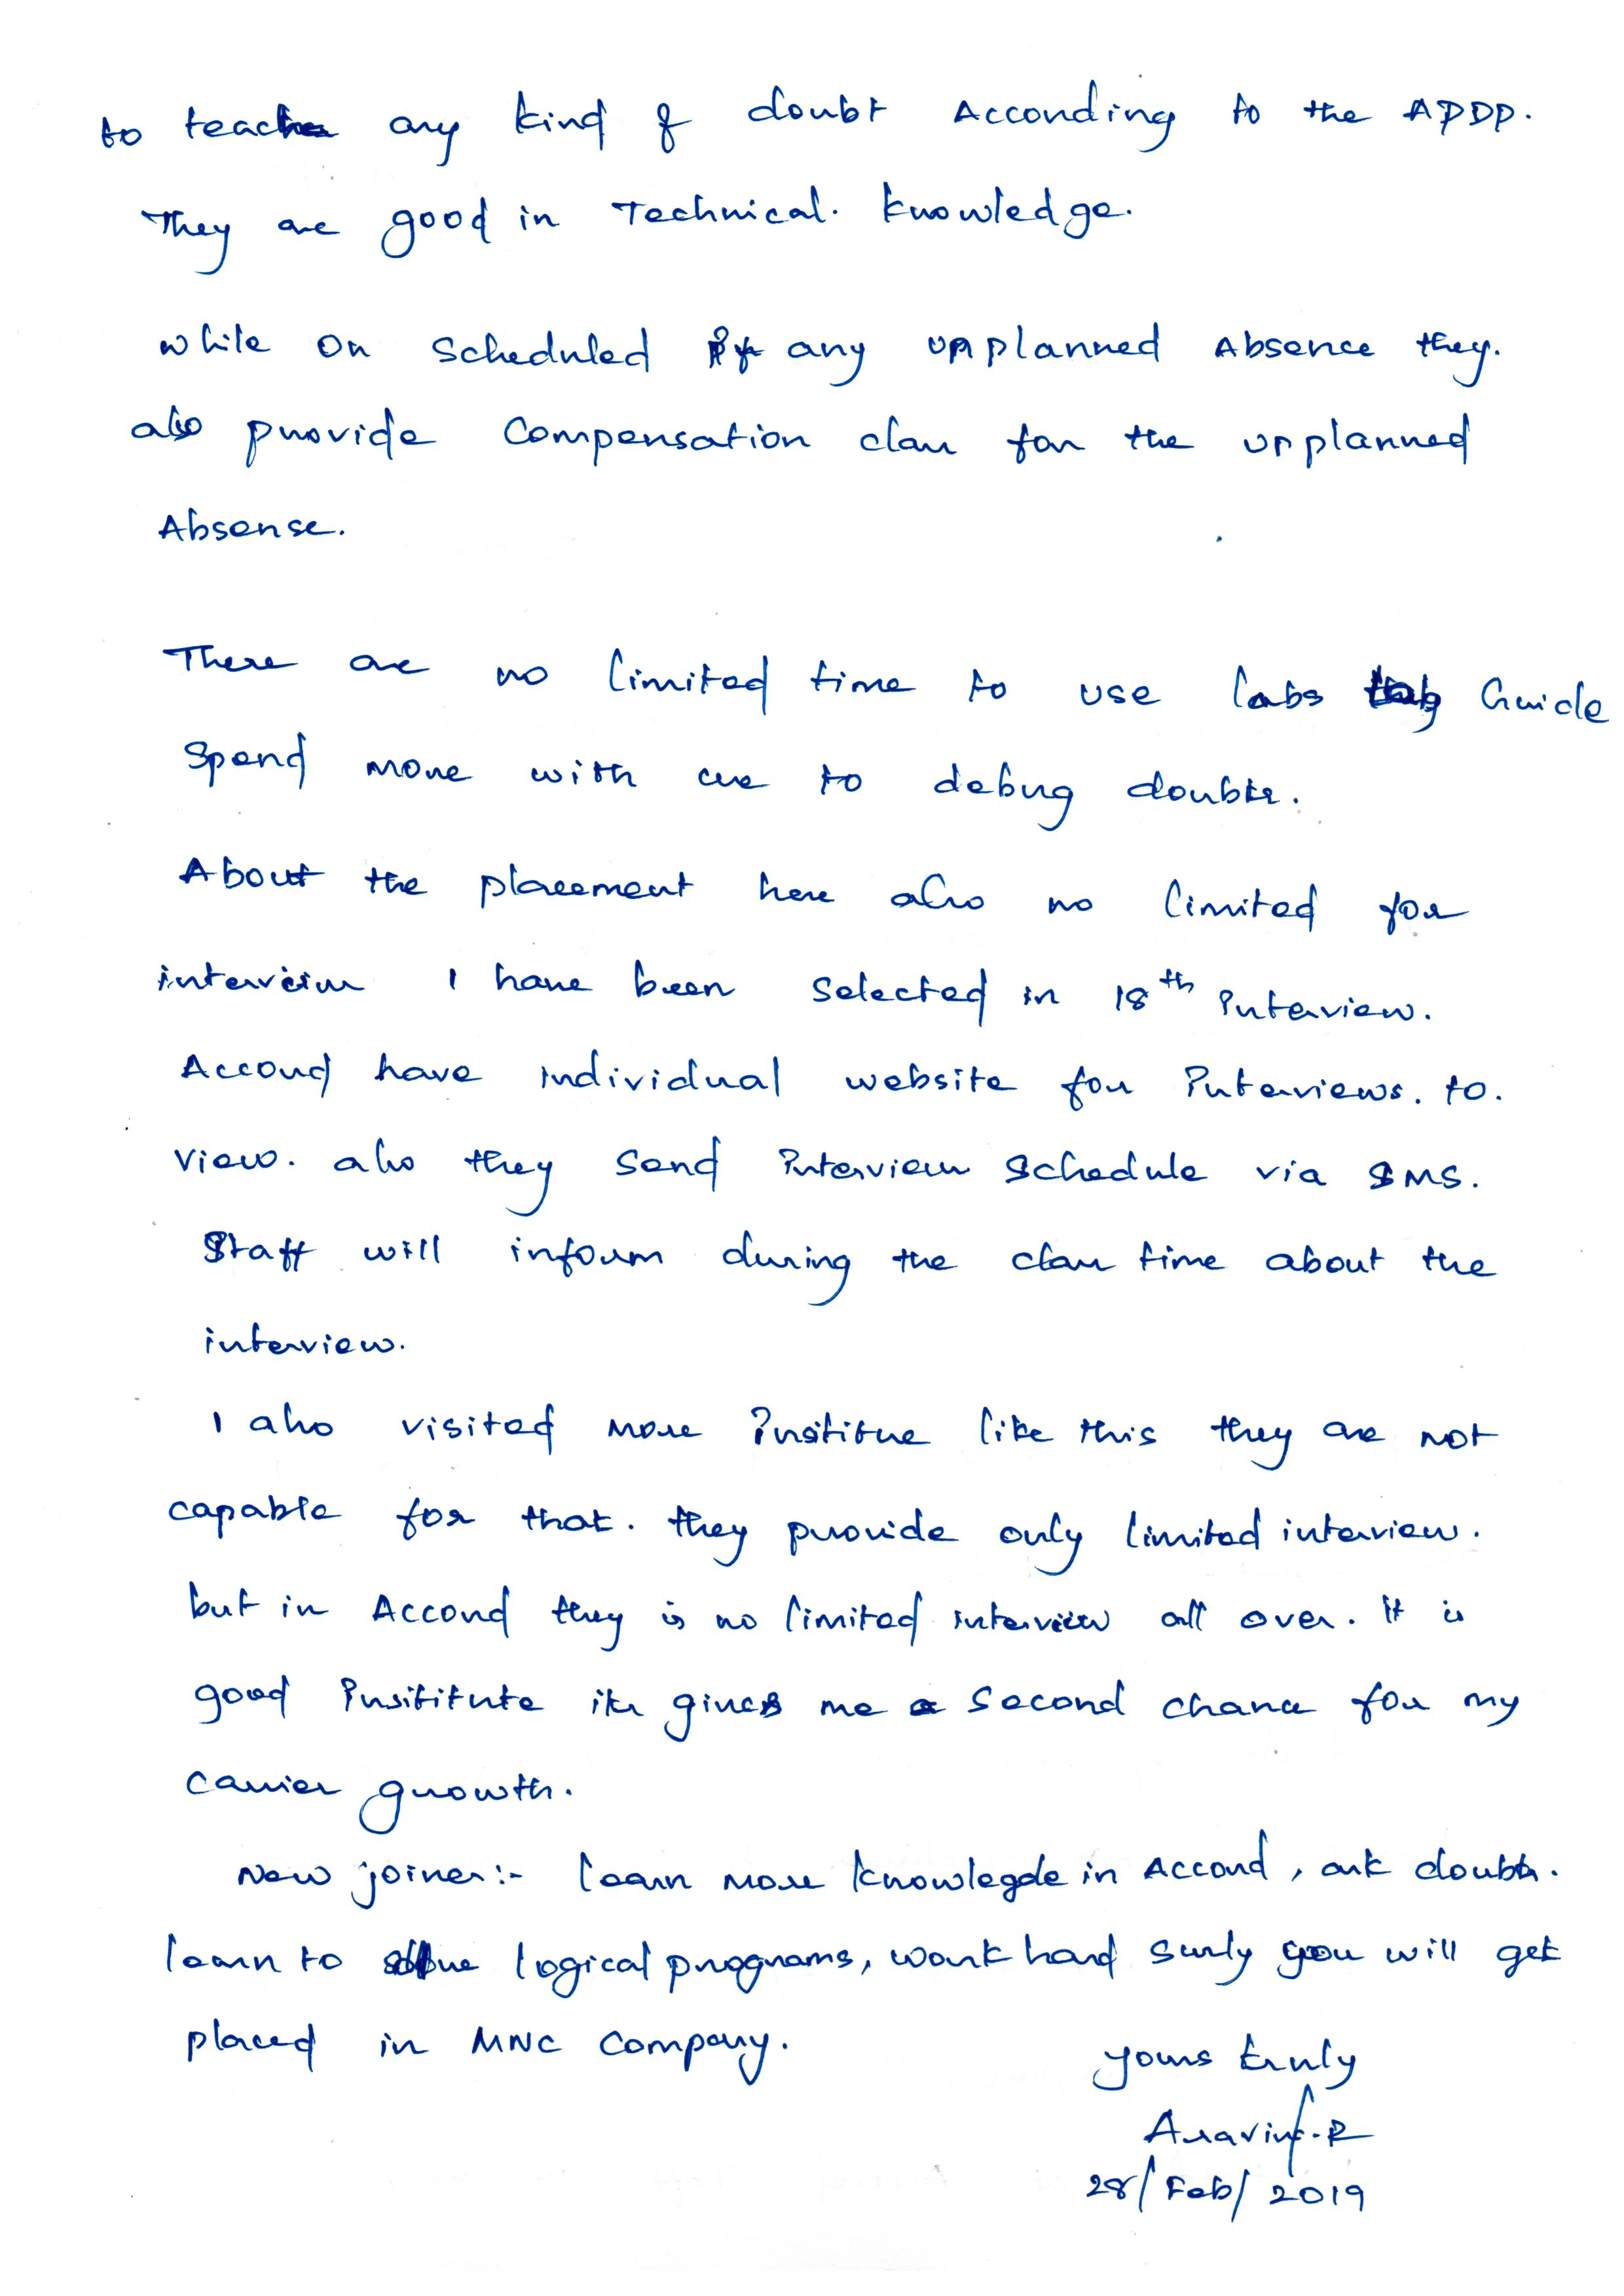 to teach any kind of doubt According to the APDP.
They are good in Technical. knowledge.
while on scheduled if any unplanned Absence they.
also provide Compensation class for the unplanned
Absense.
There are no limited time to use labs Guide
Spend more with us to debug doubts.
About the placement here also no limited for
interview I have been selected in 18th interview.
Accord have individual website for interviews. to.
view. also they send interview schedule via SMS.
Staff will inform during the class time about the
interview.
I also visited more institue like this they are not
capable for that. they provide only limited interview.
but in Accord they is no limited interview all over. It is
good insititute its gives me a second chance for my
carrier growth.
New joiner:- learn more knowlegde in Accord, ask doubts.
learn to solve logical programs, work hard surly you will get
placed in MNC company.
yours truly
Aravind.R
28/Feb/2019